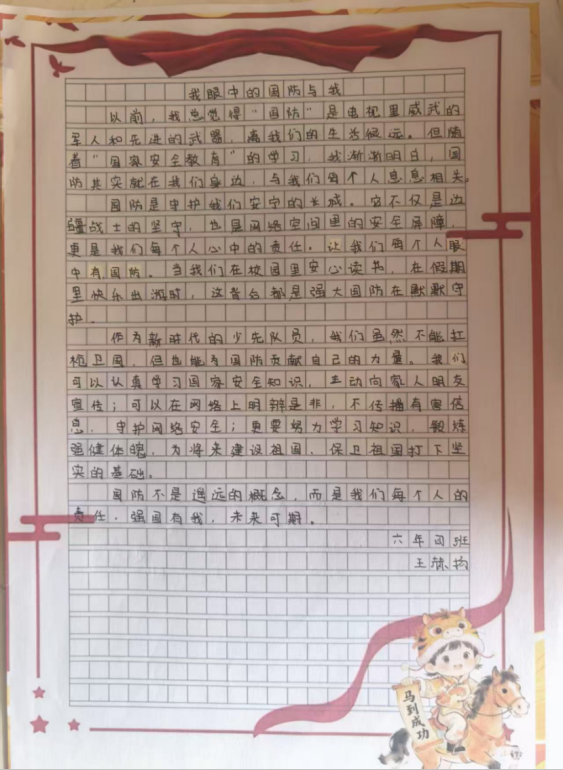 我眼中的国防与我
以前，我总觉得“国防”是电视里威武的
军人和先进的武器，离我们的生活很远。但随
着“国家安全教育”的学习，我渐渐明白，国
防其实就在我们身边，与我们每个人息息相关。
国防是守护我们安宁的长城。它不仅是边
疆战士的坚守，也是网络空间里的安全屏障，
更是我们每个人心中的责任。让我们每个人眼
中有国防。当我们在校园里安心读书，在假期
里快乐出游时，这背后都是强大国防在默默守
护。
作为新时代的少先队员，我们虽然不能扛
枪卫国，但也能为国防贡献自己的力量。我们
可以认真学习国家安全知识，主动向家人朋友
宣传；可以在网络上明辩是非，不传播有害信
息，守护网络安全；更要努力学习知识，锻炼
强健体魄，为将来建设祖国、保卫祖国打下坚
实的基础。
国防不是遥远的概念，而是我们每个人的
责任。强国有我，未来可期。
六年四班
王
马到成功